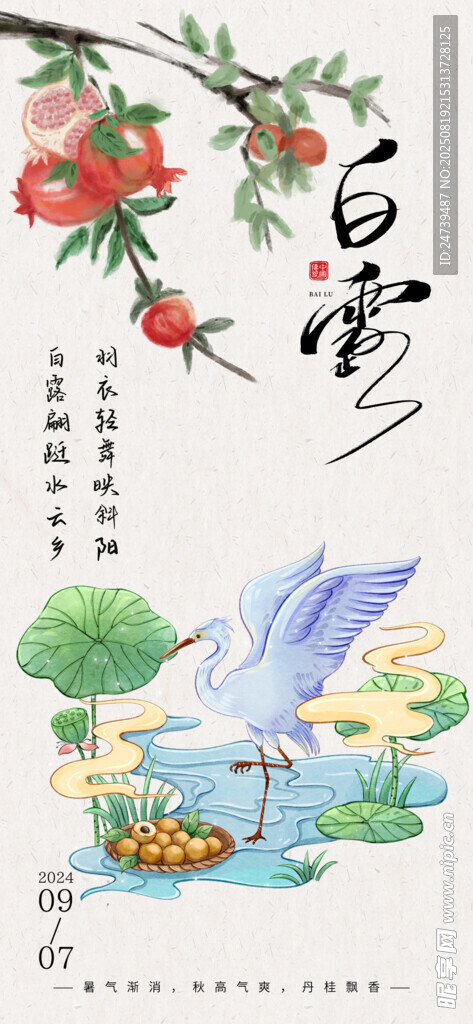 白露
BAI LU
羽衣轻舞映斜阳
白露翩跹水云乡
2024
09/07
暑气渐消，秋高气爽，丹桂飘香
ID:24739487 NO:20250819215313728125
昵享网 www.nipic.cn